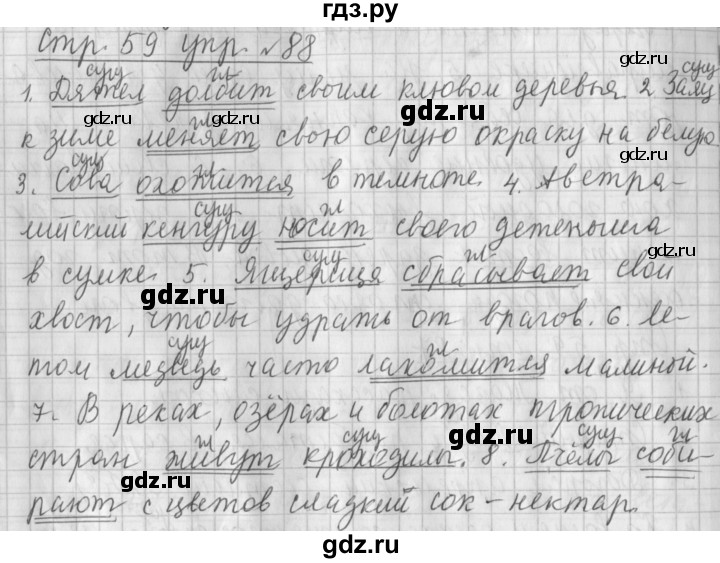 гдз.ру
Стр. 59 упр. №88
gdz.ru
сущ гл сущ
1. Дятел долбит своим клювом деревья. 2 Заяц
gdz.ru gdz.ru
гл
к зиме меняет свою серую окраску на белую.
сущ гл
3. Сова охотится в темноте. 4. Австра-
gdz.ru
сущ гл
лийский кенгуру носит своего детеныша
gdz.ru
сущ гл
в сумке. 5. Ящерица сбрасывает свой
gdz.ru
хвост, чтобы удрать от врагов. 6. Ле-
сущ гл
том медведь часто лакомится малиной.
gdz.ru
7. В реках, озёрах и болотах тропических
gdz.ru
гл сущ сущ гл
стран живут крокодилы. 8. Пчёлы соби-
gdz.ru
рают с цветов сладкий сок - нектар.
gdz.ru
gdz.ru